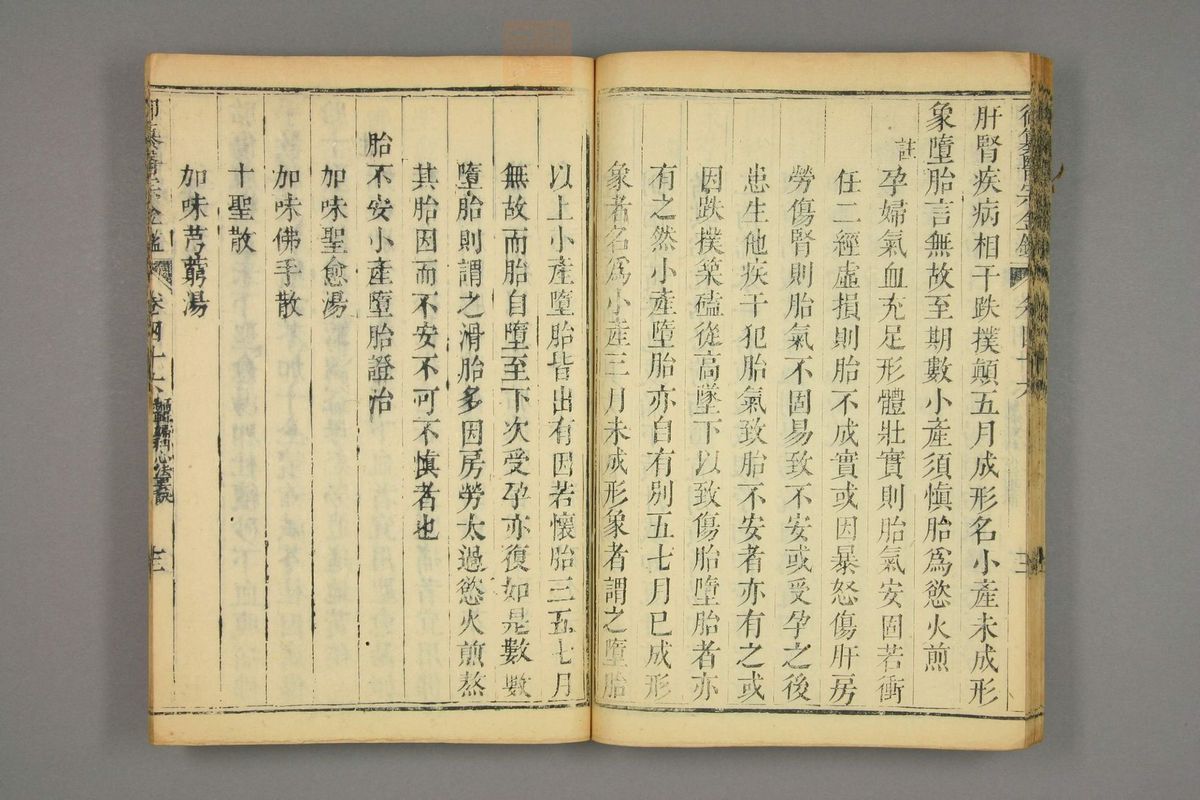 肝腎疾病相干跌撲顛五月成形名小產未成形
象墮胎言無故至期數小產須慎胎爲慾火煎
註孕婦氣血充足形體壯實則胎氣安固若衝
任二經虛損則胎不成實或因暴怒傷肝房
勞傷腎則胎氣不固易致不安或受孕之後
患生他疾干犯胎氣致胎不安者亦有之或
因跌撲築磕從高墜下以致傷胎墮胎者亦
有之然小產墮胎亦自有別五七月已成形
象者名爲小產三月未成形象者謂之墮胎
以上小產墮胎皆出有因若懷胎三五七月
無故而胎自墮至下次受孕亦復如是數數
墮胎則謂之滑胎多因房勞太過慾火煎熬
其胎因而不安不可不慎者也
胎不安小產墮胎證治
加味聖愈湯
加味佛手散
十聖散
加味芎藭湯
醫宗金鑑 卷四十六 婦科心法要訣